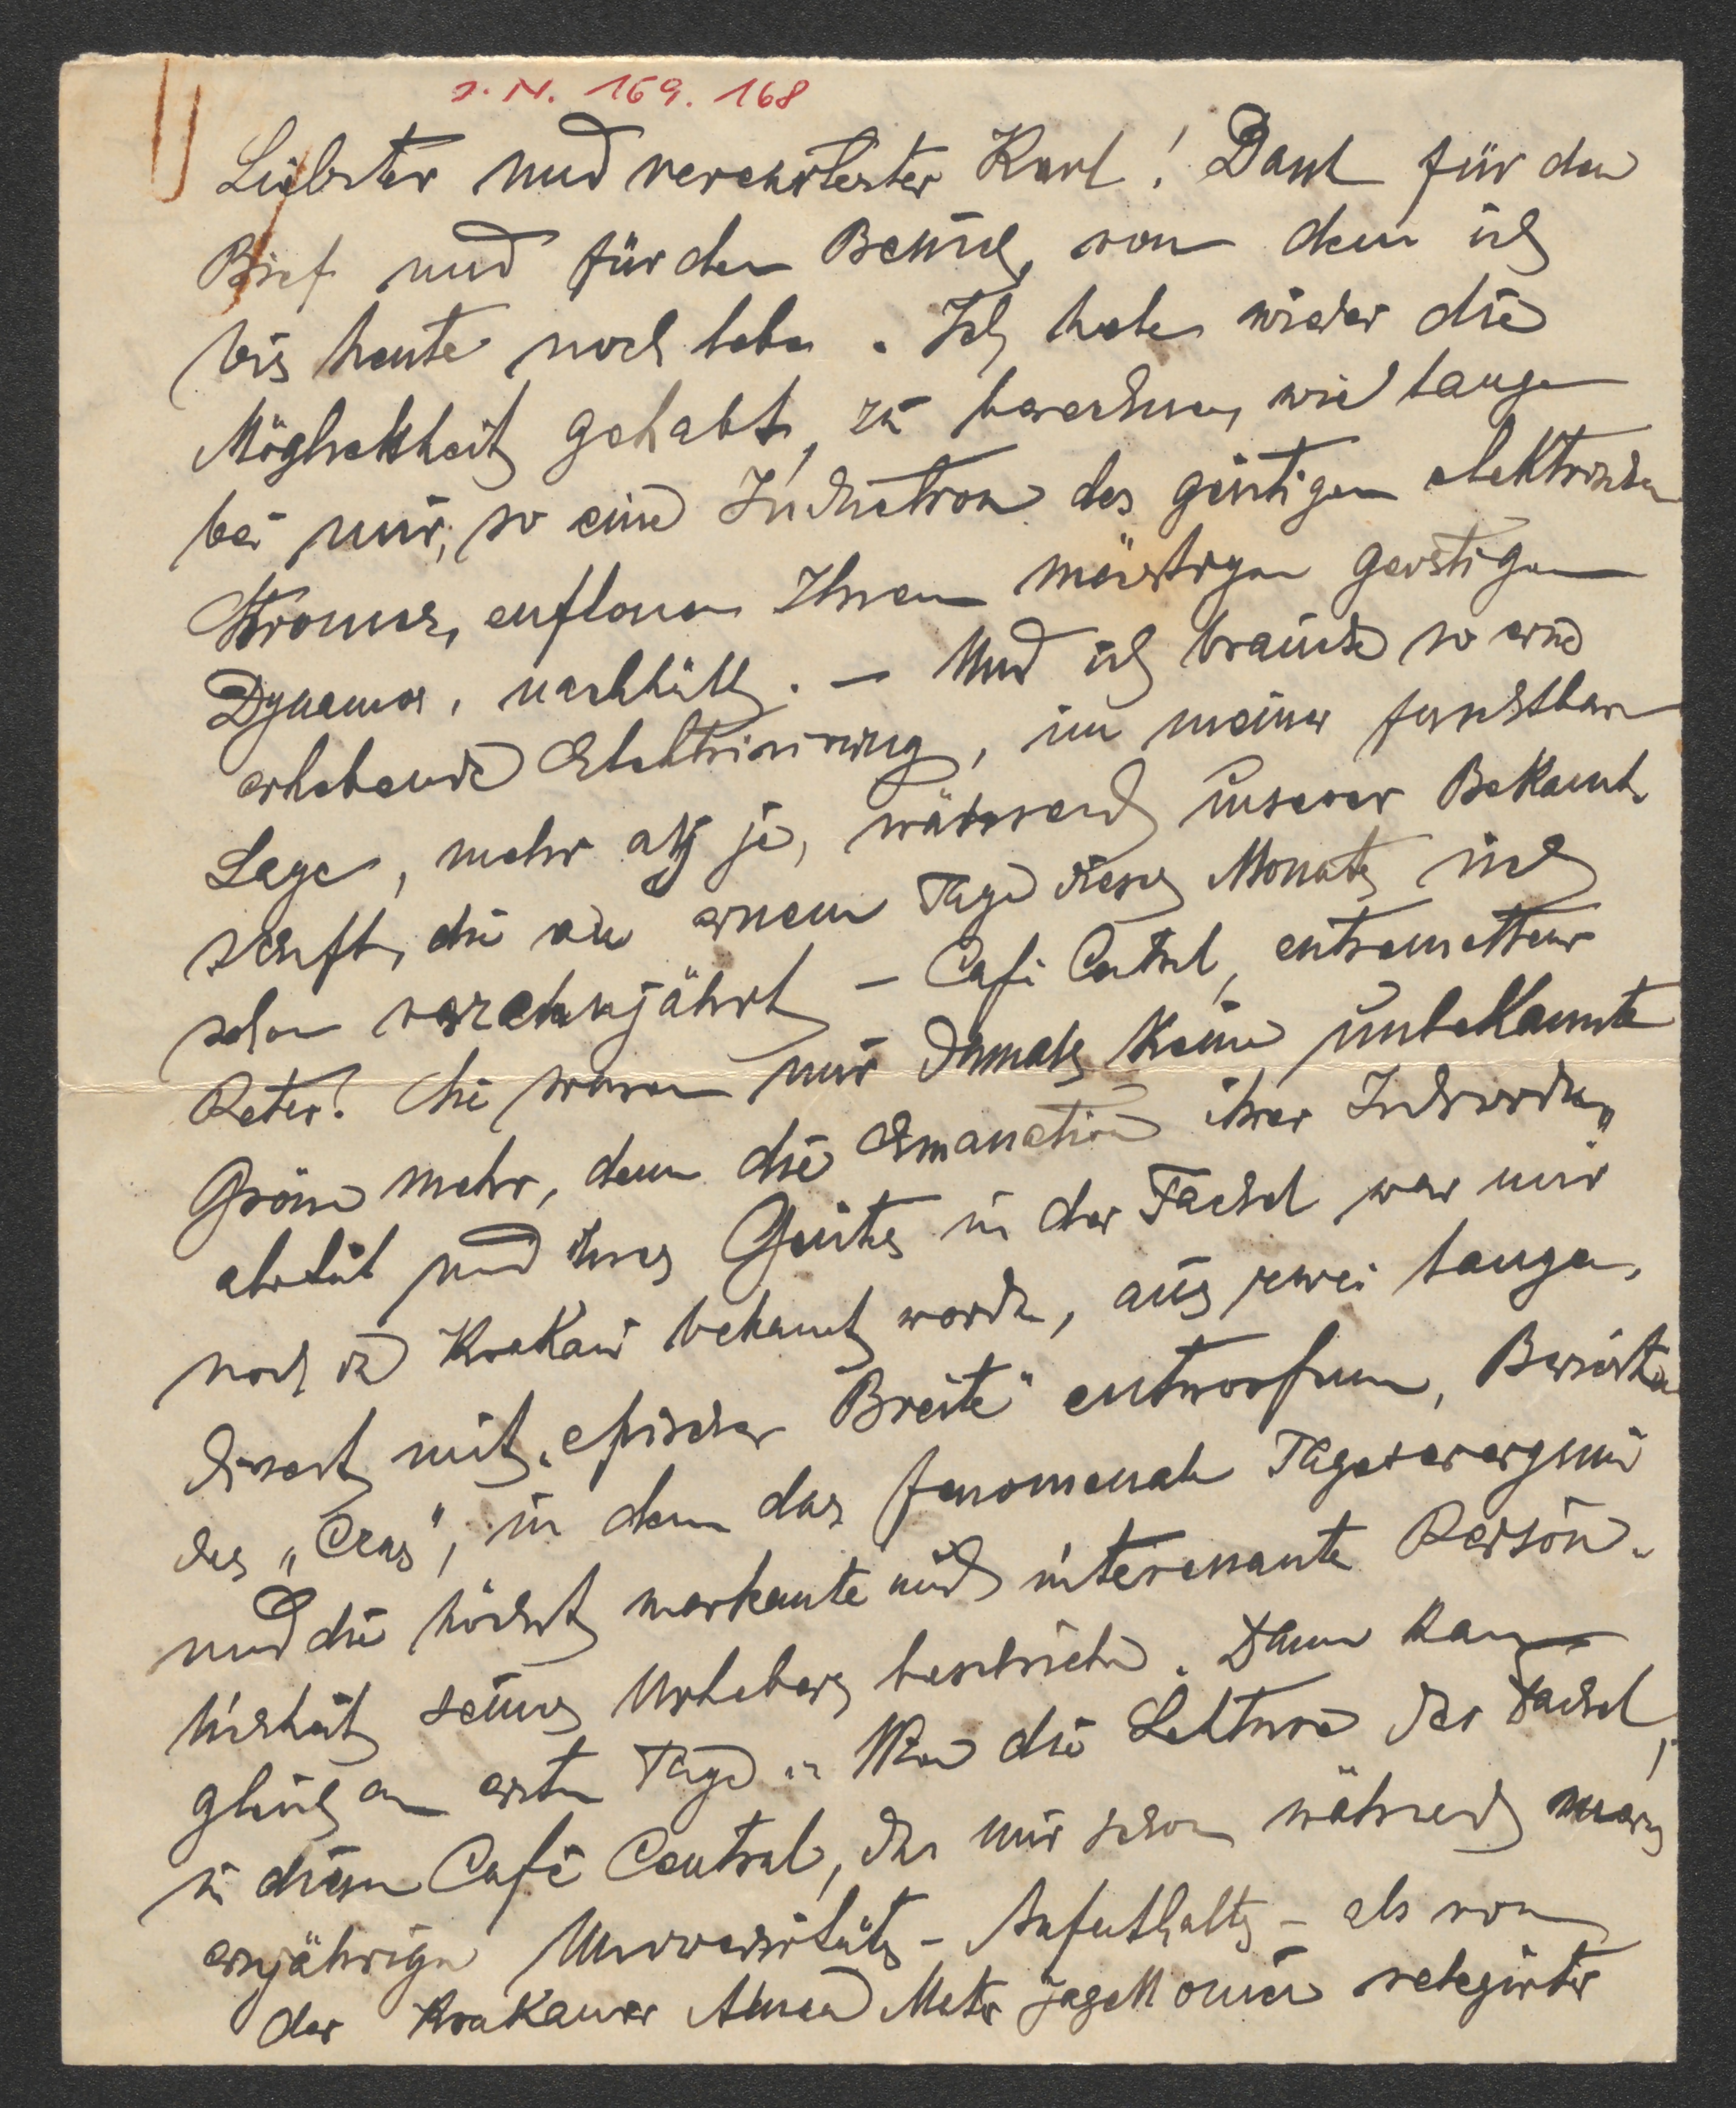 I. N. 169. 168
Liebster und verehrtester Karl! Dank für den
Brief und für den Besuch, von dem ich
bis heute noch lebe. Ich habe wieder die
Möglichkeit gehabt, zu berechnen, wie lange
bei mir, so eine Induction des geistigen elektrischen
Stromes, entflossen Ihrem mächtigen geistigen
Dynamos, nachhält. – Und ich brauche so eine
erhebende Elektrisirung, in meiner furchtbaren
Lage, mehr als je, während unserer Bekannt-
schaft, die an einem Tage dieses Monats sich
schon verzehnjährt – Café Central, entremetteur
Peter! Sie waren mir damals keine unbekannte
Grösse mehr, denn die Emanation ihrer Individu-
alität und ihres Geistes in der Fackel war mir
noch in Krakau bekannt worden, aus zwei langen,
derart mit „epischer Breite" entworfenen, Berichten
des „Czas", in dem das fenomenale Tagesereigniss
und die höchst markante und interessante Persön-
lichkeit seines Urhebers beschrieben. Dann kam
gleich am ersten Tage in Wien die Lektüre der Fackel,
in diesem Café Central, das mir schon während meines
einjährigen Universitäts-Aufenthalts – als von
der Krakauer Alma Mater Jagellonica relegirter